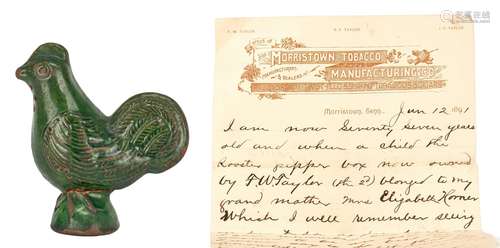 F. W. TAYLOR
OFFICE OF
MORRISTOWN TOBACCO
MANUFACTURERS
& DEALERS
MANUFACTURING CO
Morristown, Tenn. Jan 12 1891
I am now Seventy Seven years
old and when a child the
Rooster pepper box now owned
by F. W Taylor (the 2d) blonged to my
grand mother Mrs Elizabeth Horner
Which I well remember seeing